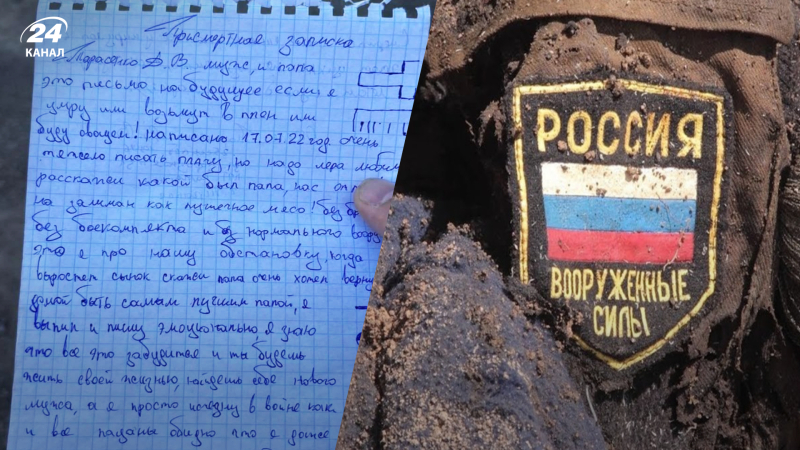 24
КАНАЛ
Присмертная записка
Д.В. муж, и папа
это письмо на будущее если я
умру или возьмут в плен или
буду овощем! Написано 17.07.22 год очень
тяжело писать плачу, но надо лера любим
какой был папа, нас
на как пушечное месо! без бр
без боекомплекта и без нормального воору
это я про нашу обстановку, когда
выростет сынок скажи папа очень хотел верну
домой быть самым лучшим папой, я
выпил и пишу эмоционально я знаю
что все это и ты будешь
жить своей жизнью, найдешь себе нового
мужа, а я просто исчезну в войне как
и все пацаны обидно что я даже
РОССИЯ
ВООРУЖЕННЫЕ
СИЛЫ